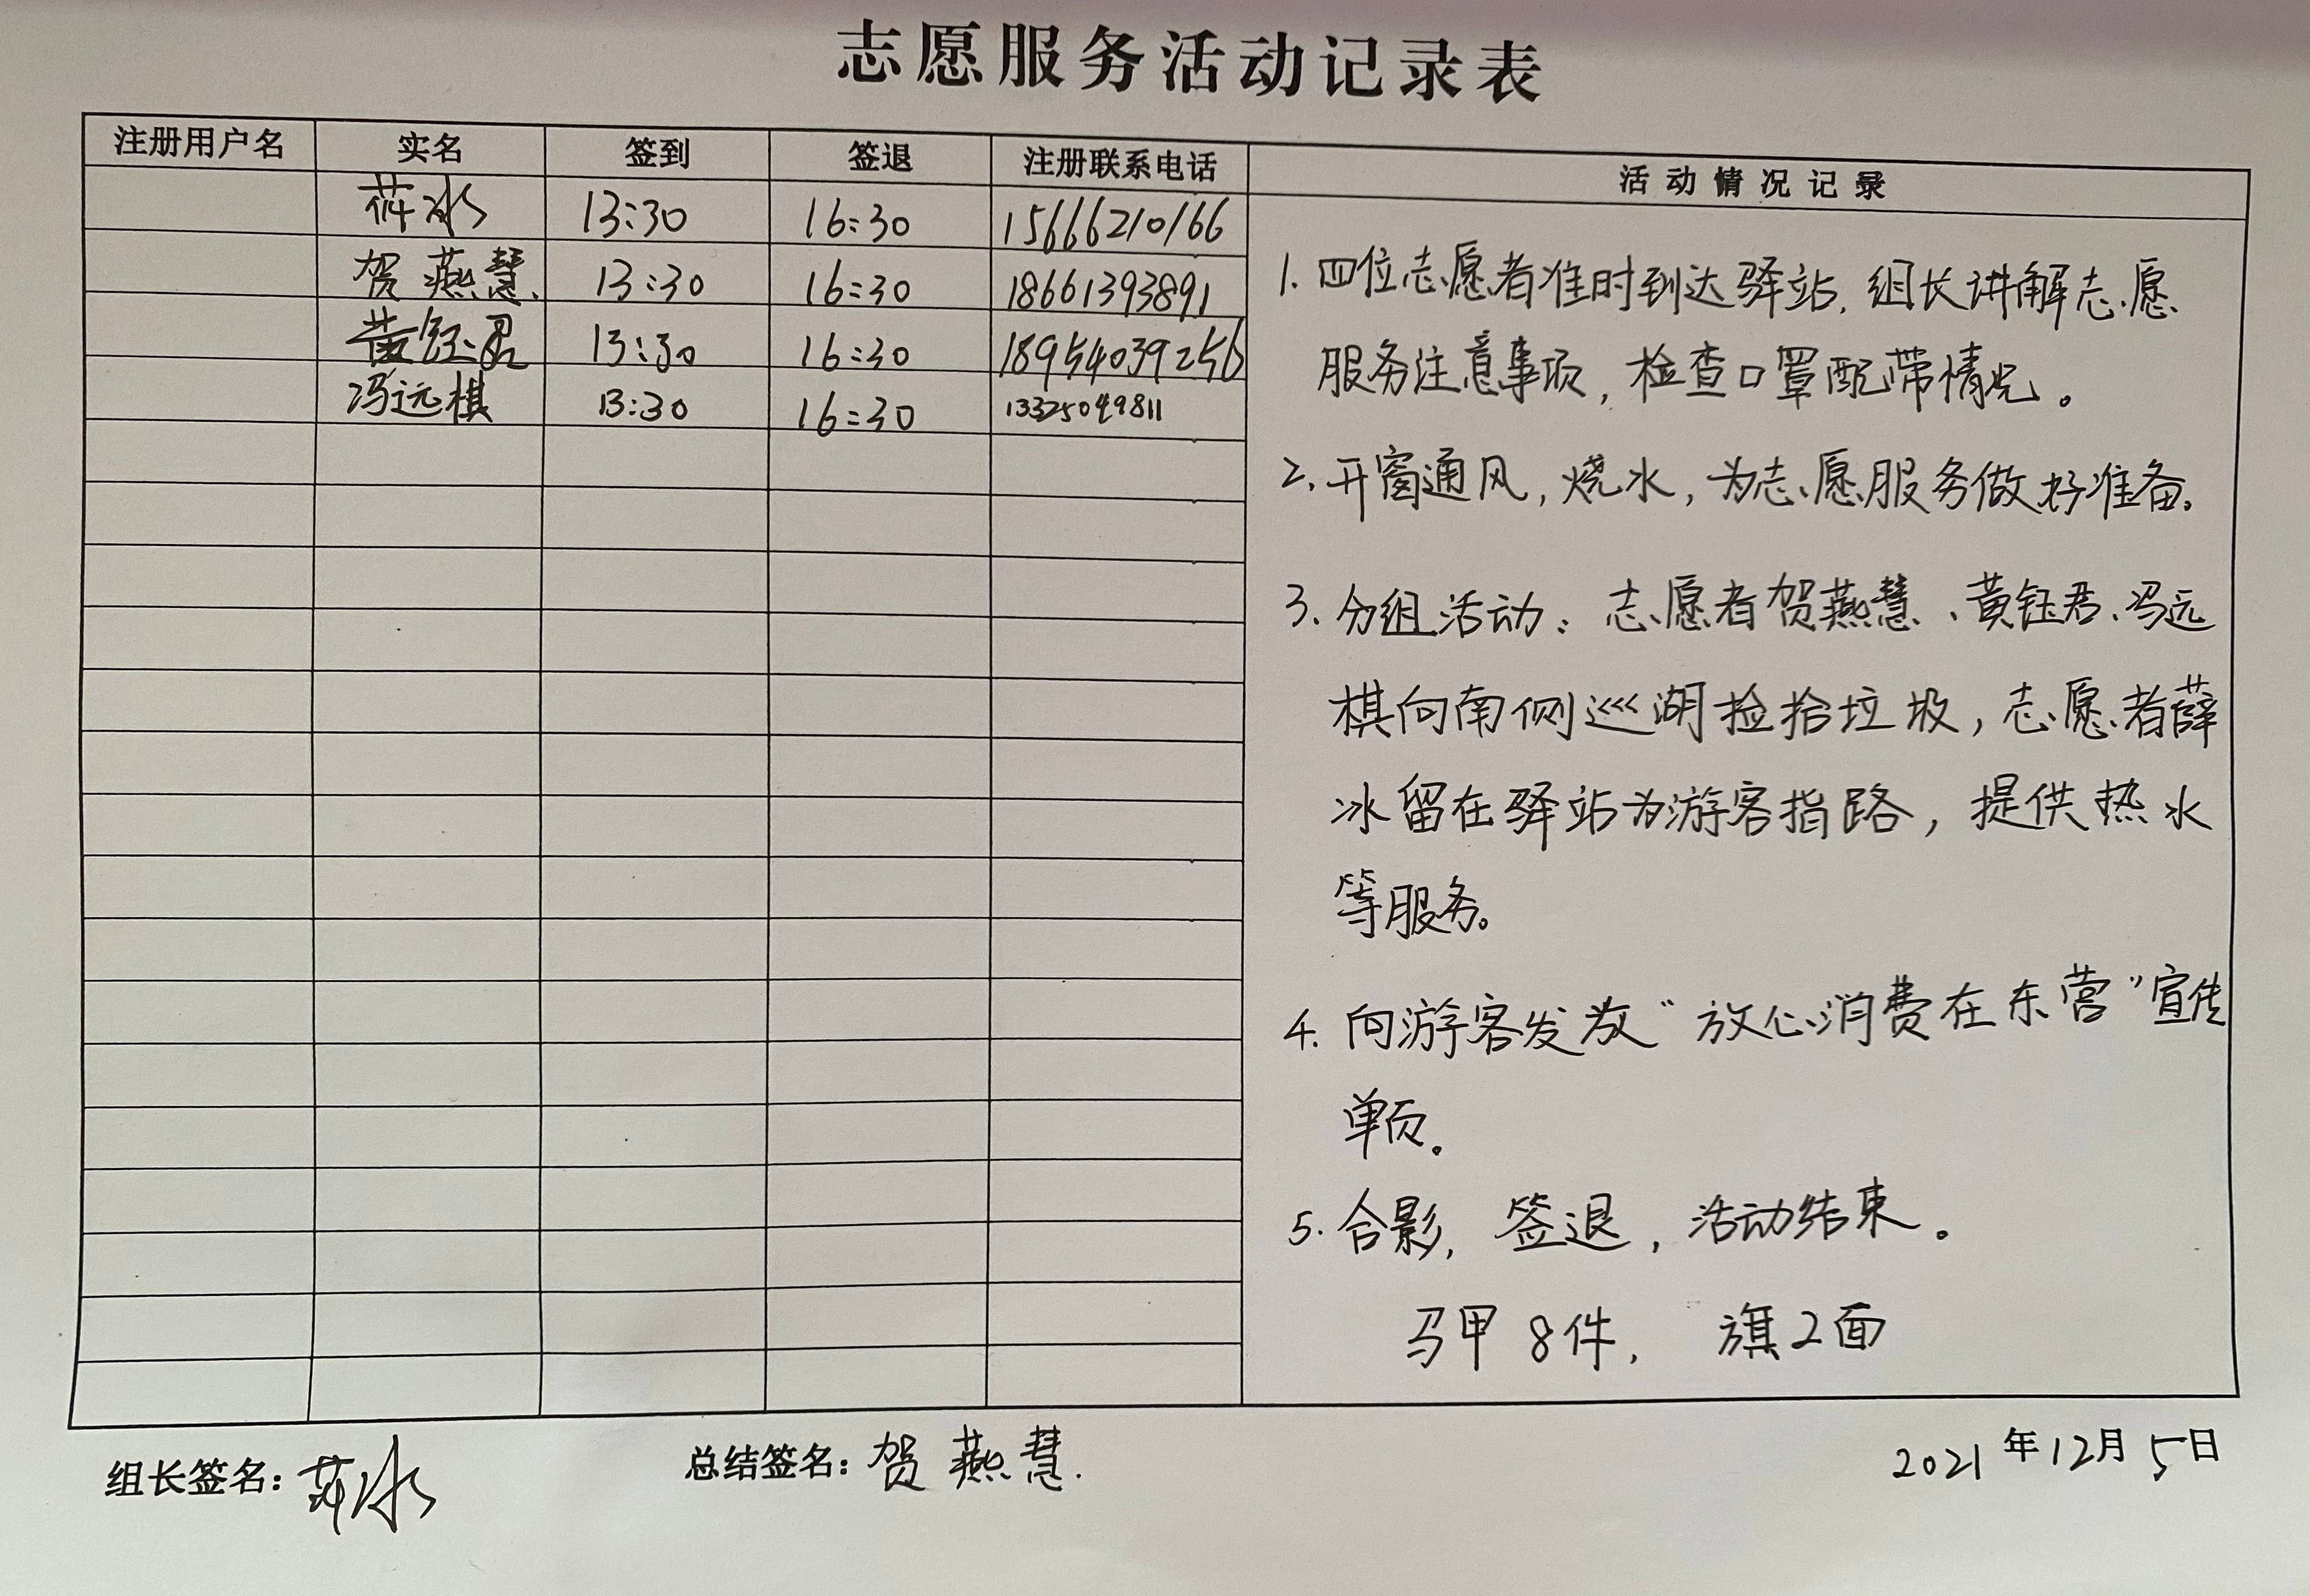 志愿服务活动记录表
注册用户名 实名 签到 签退 注册联系电话 活动情况记录
薛冰 13:30 16:30 15666210166
贺燕慧 13:30 16:30 18661393891
黄钰君 13:30 16:30 18954039256
冯远棋 13:30 16:30 13325049811
1. 四位志愿者准时到达驿站，组长讲解志愿
服务注意事项，检查口罩配带情况。
2. 开窗通风，烧水，为志愿服务做好准备。
3. 分组活动：志愿者贺燕慧、黄钰君、冯远
棋向南侧巡湖捡拾垃圾，志愿者薛
冰留在驿站为游客指路，提供热水
等服务。
4. 向游客发放“放心消费在东营”宣传
单页。
5. 合影，签退，活动结束。
马甲8件， 旗2面
组长签名：薛冰 总结签名：贺燕慧. 2021年12月5日